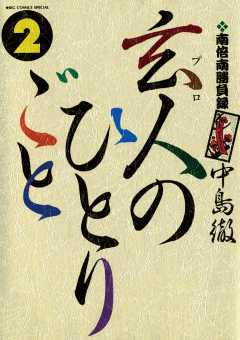 BIG COMICS SPECIAL
2
南倍南勝負録
プロ
玄人の
ひとり
ごと
中島徹